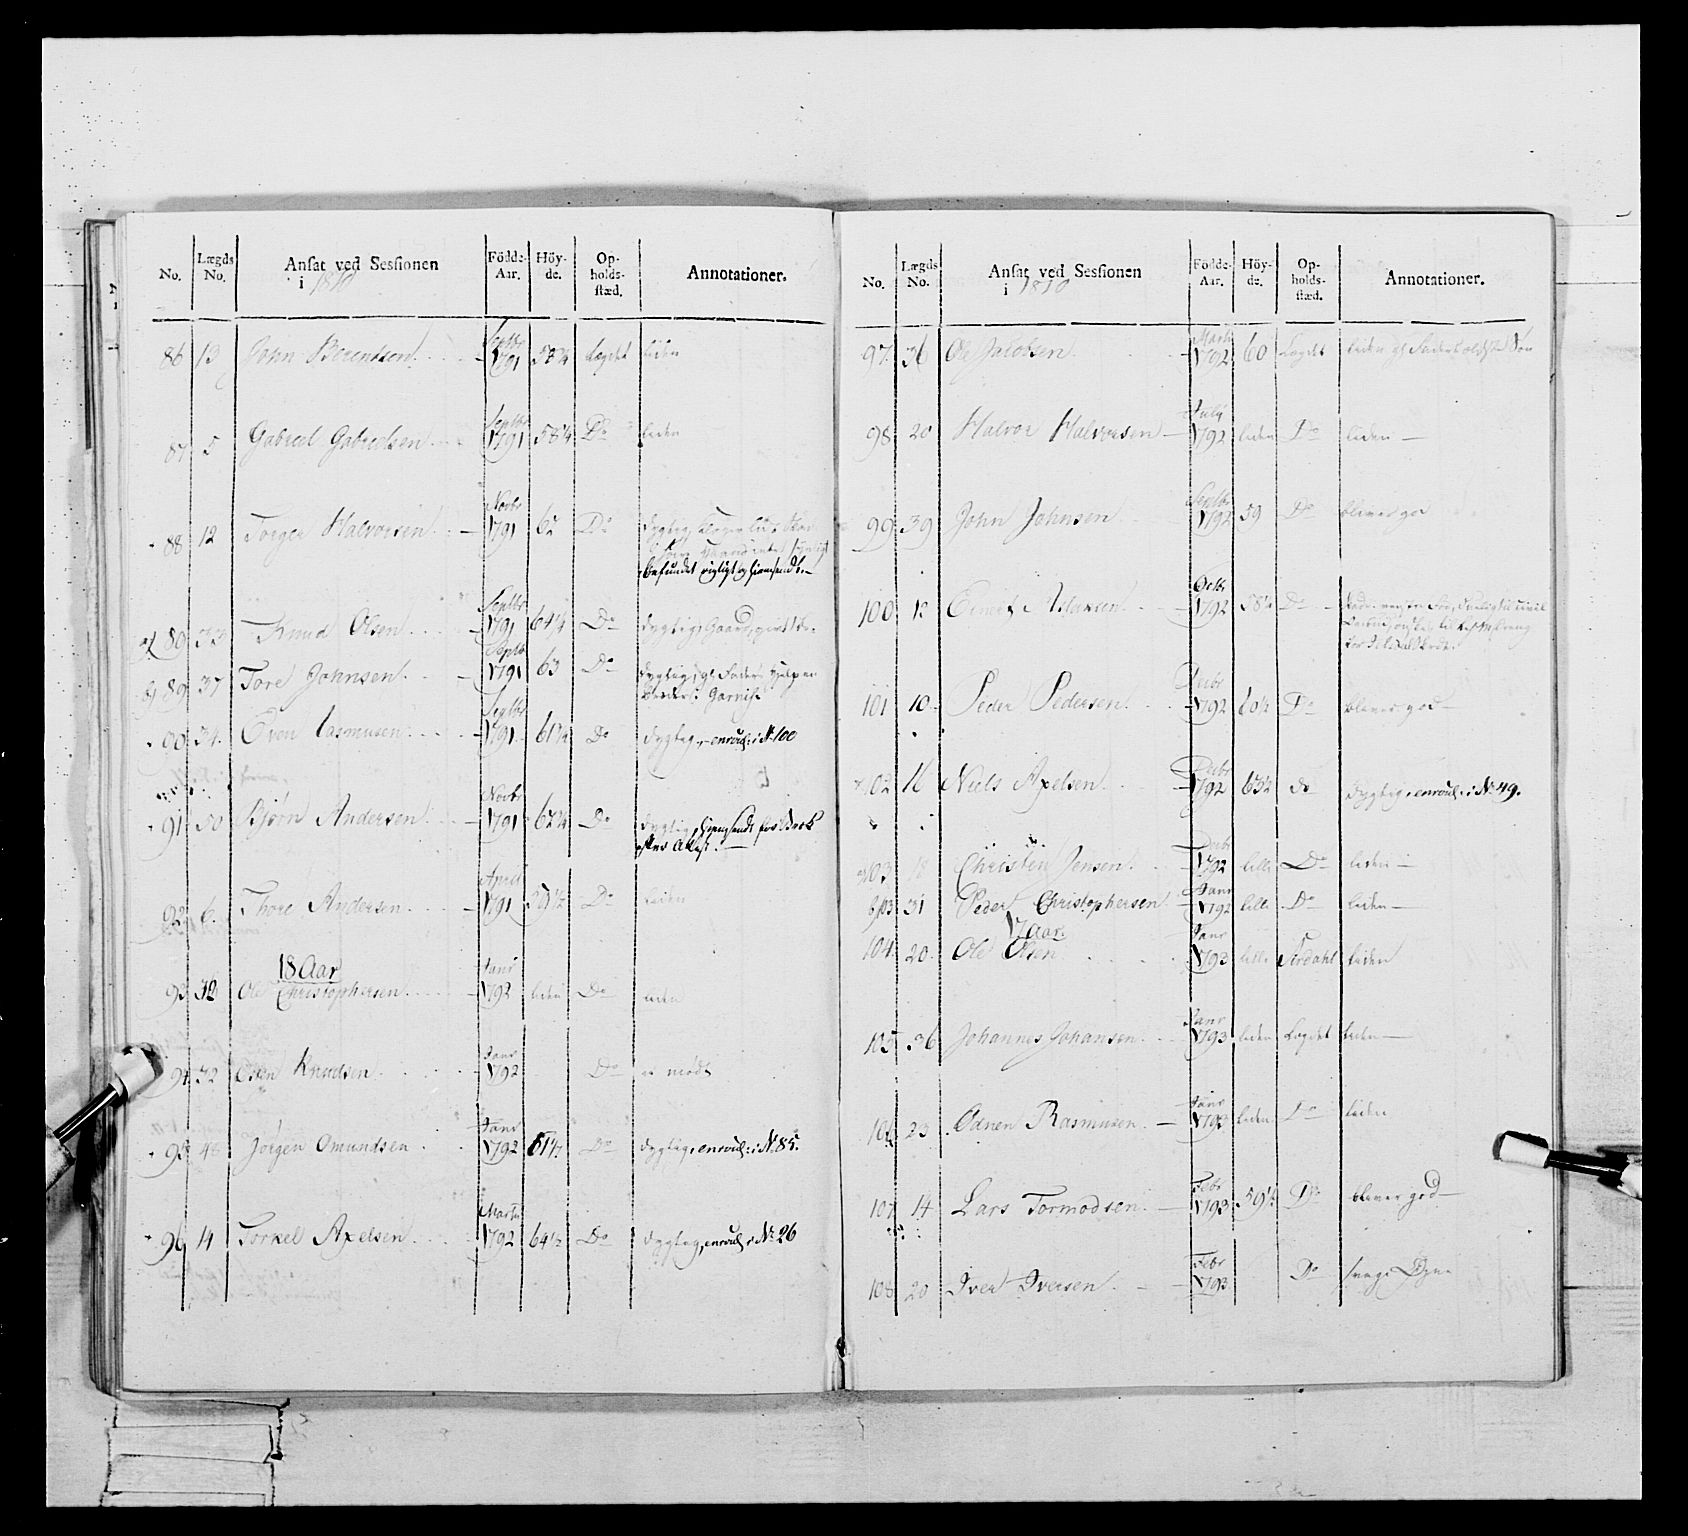 No. Lægds No. Ansat ved Sessionen i 1810 Födde-Aar. Höy-de. Op-holds-stæd. Annotationer.
86 13 John Berentsen Septbr 1791 58¾ Lægdet liden
87 5 Gabriel Gabrielsen Septbr 1791 58¼ Do liden
88 12 Torger Halvorsen Novbr 1791 62 Do dygtig,
befundet rigtigt og hiemsendt.
a 89 33 Knud Olsen Septbr 1791 64¼ Do dygtig, Gaard,
b 89 37 Tore Johnsen Septbr 1791 63 Do dygtig, gl. Faders Hielp
90 34 Even Rasmusen Septbr 1791 61¾ Do dygtig, enroul: i No 100
91 50 Bjørn Andersen Novbr 1791 62¼ Do dygtig, hiemsendt for Brok
efter Attest.
92 6 Thore Andersen April 1791 59½ Do liden
18 Aar
93 32 Ole Christophersen Janr 1792 liden Do liden
94 32 Osten Knudsen Janr 1792 Do ei mödt
95 48 Jørgen Omundsen Janr 1792 61½ Do dygtig, enroul: i No 85.
96 14 Torkel Axelsen Marts 1792 64½ Do dygtig, enroul: i No 26
No. Lægds No. Ansat ved Sessionen i 1810 Födde-Aar. Höy-de. Op-holds-stæd. Annotationer.
97 36 Ole Jacobsen Marts 1792 60 Lægdet liden gl. Faders Sön
98 20 Halvor Halvorsen July 1792 liden Do liden
99 39 John Johnsen Septbr 1792 59 Do bliver god
100 12 Ener Aslaksen Octbr 1792 58½ Do
101 10 Peder Pedersen Decbr 1792 60½ Do bliver god
102 16 Niels Axelsen Decbr 1792 63½ do dygtig, enroul: i No 49.
a 103 18 Christen Jensen Decbr 1792 lille Do liden
b 103 31 Peder Christophersen Janr 1792 lille Do liden
17 Aar.
104 20 Ole Olsen Janr 1793 lille Sirdahl liden
105 36 Johannes Johansen Janr 1793 liden Lægdet liden
106 23 Odnen Rasmusen Janr 1793 liden Do liden
107 14 Lars Tormodsen Febr 1793 59½ Do bliver god
108 20 Iver Iversen Febr 1793 Do svage Øyne